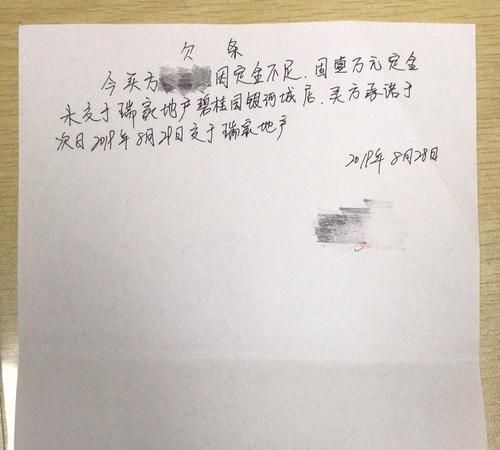 欠条
今买方因定金不足,固壹万元定金
未交于瑞家地产碧桂园银河城店,买方承诺于
次日2019年8月29日交于瑞家地产
2019年8月28日